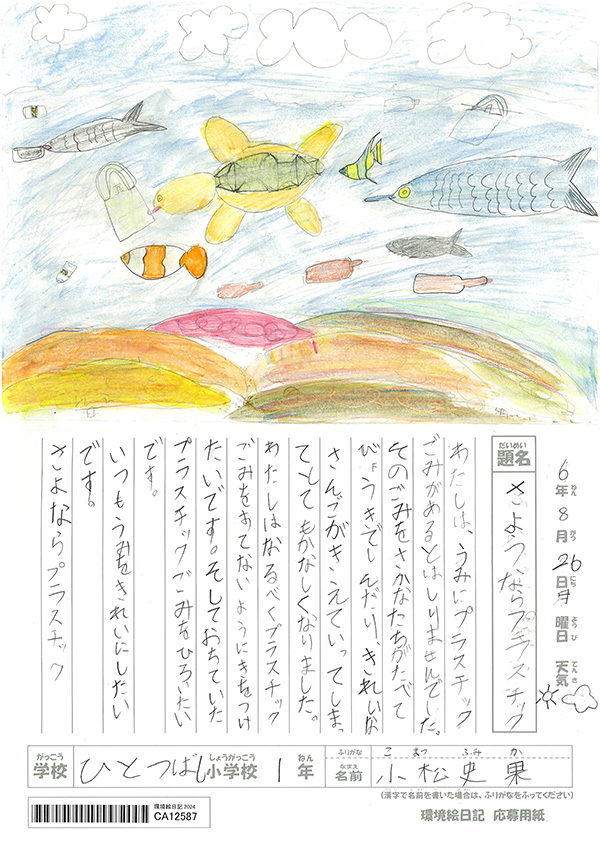 6年8月26日月曜日 天気
ねん がつ にち ようび てんき
だいめい
題名 さようならプラスチック
わたしは、うみにプラスチック
ごみがあるとはしりませんでした。
そのごみをさかなたちがたべて
びょうきでしんだり、きれいな
さんごがきえていってしまっ
てとてもかなしくなりました。
わたしはなるべくプラスチック
ごみをすてないようにきをつけ
たいです。そしておちていた
プラスチックごみをひろいたい
です。
いつもうみをきれいにしたい
です。
さよならプラスチック
がっこう しょうがっこう ねん ふりがな こまつ ふみか
学校 ひとつばし小学校 1年 なまえ 名前 小松史果
(漢字で名前を書いた場合は、ふりがなをふってください)
環境絵日記 2024
CA12587
環境絵日記 応募用紙